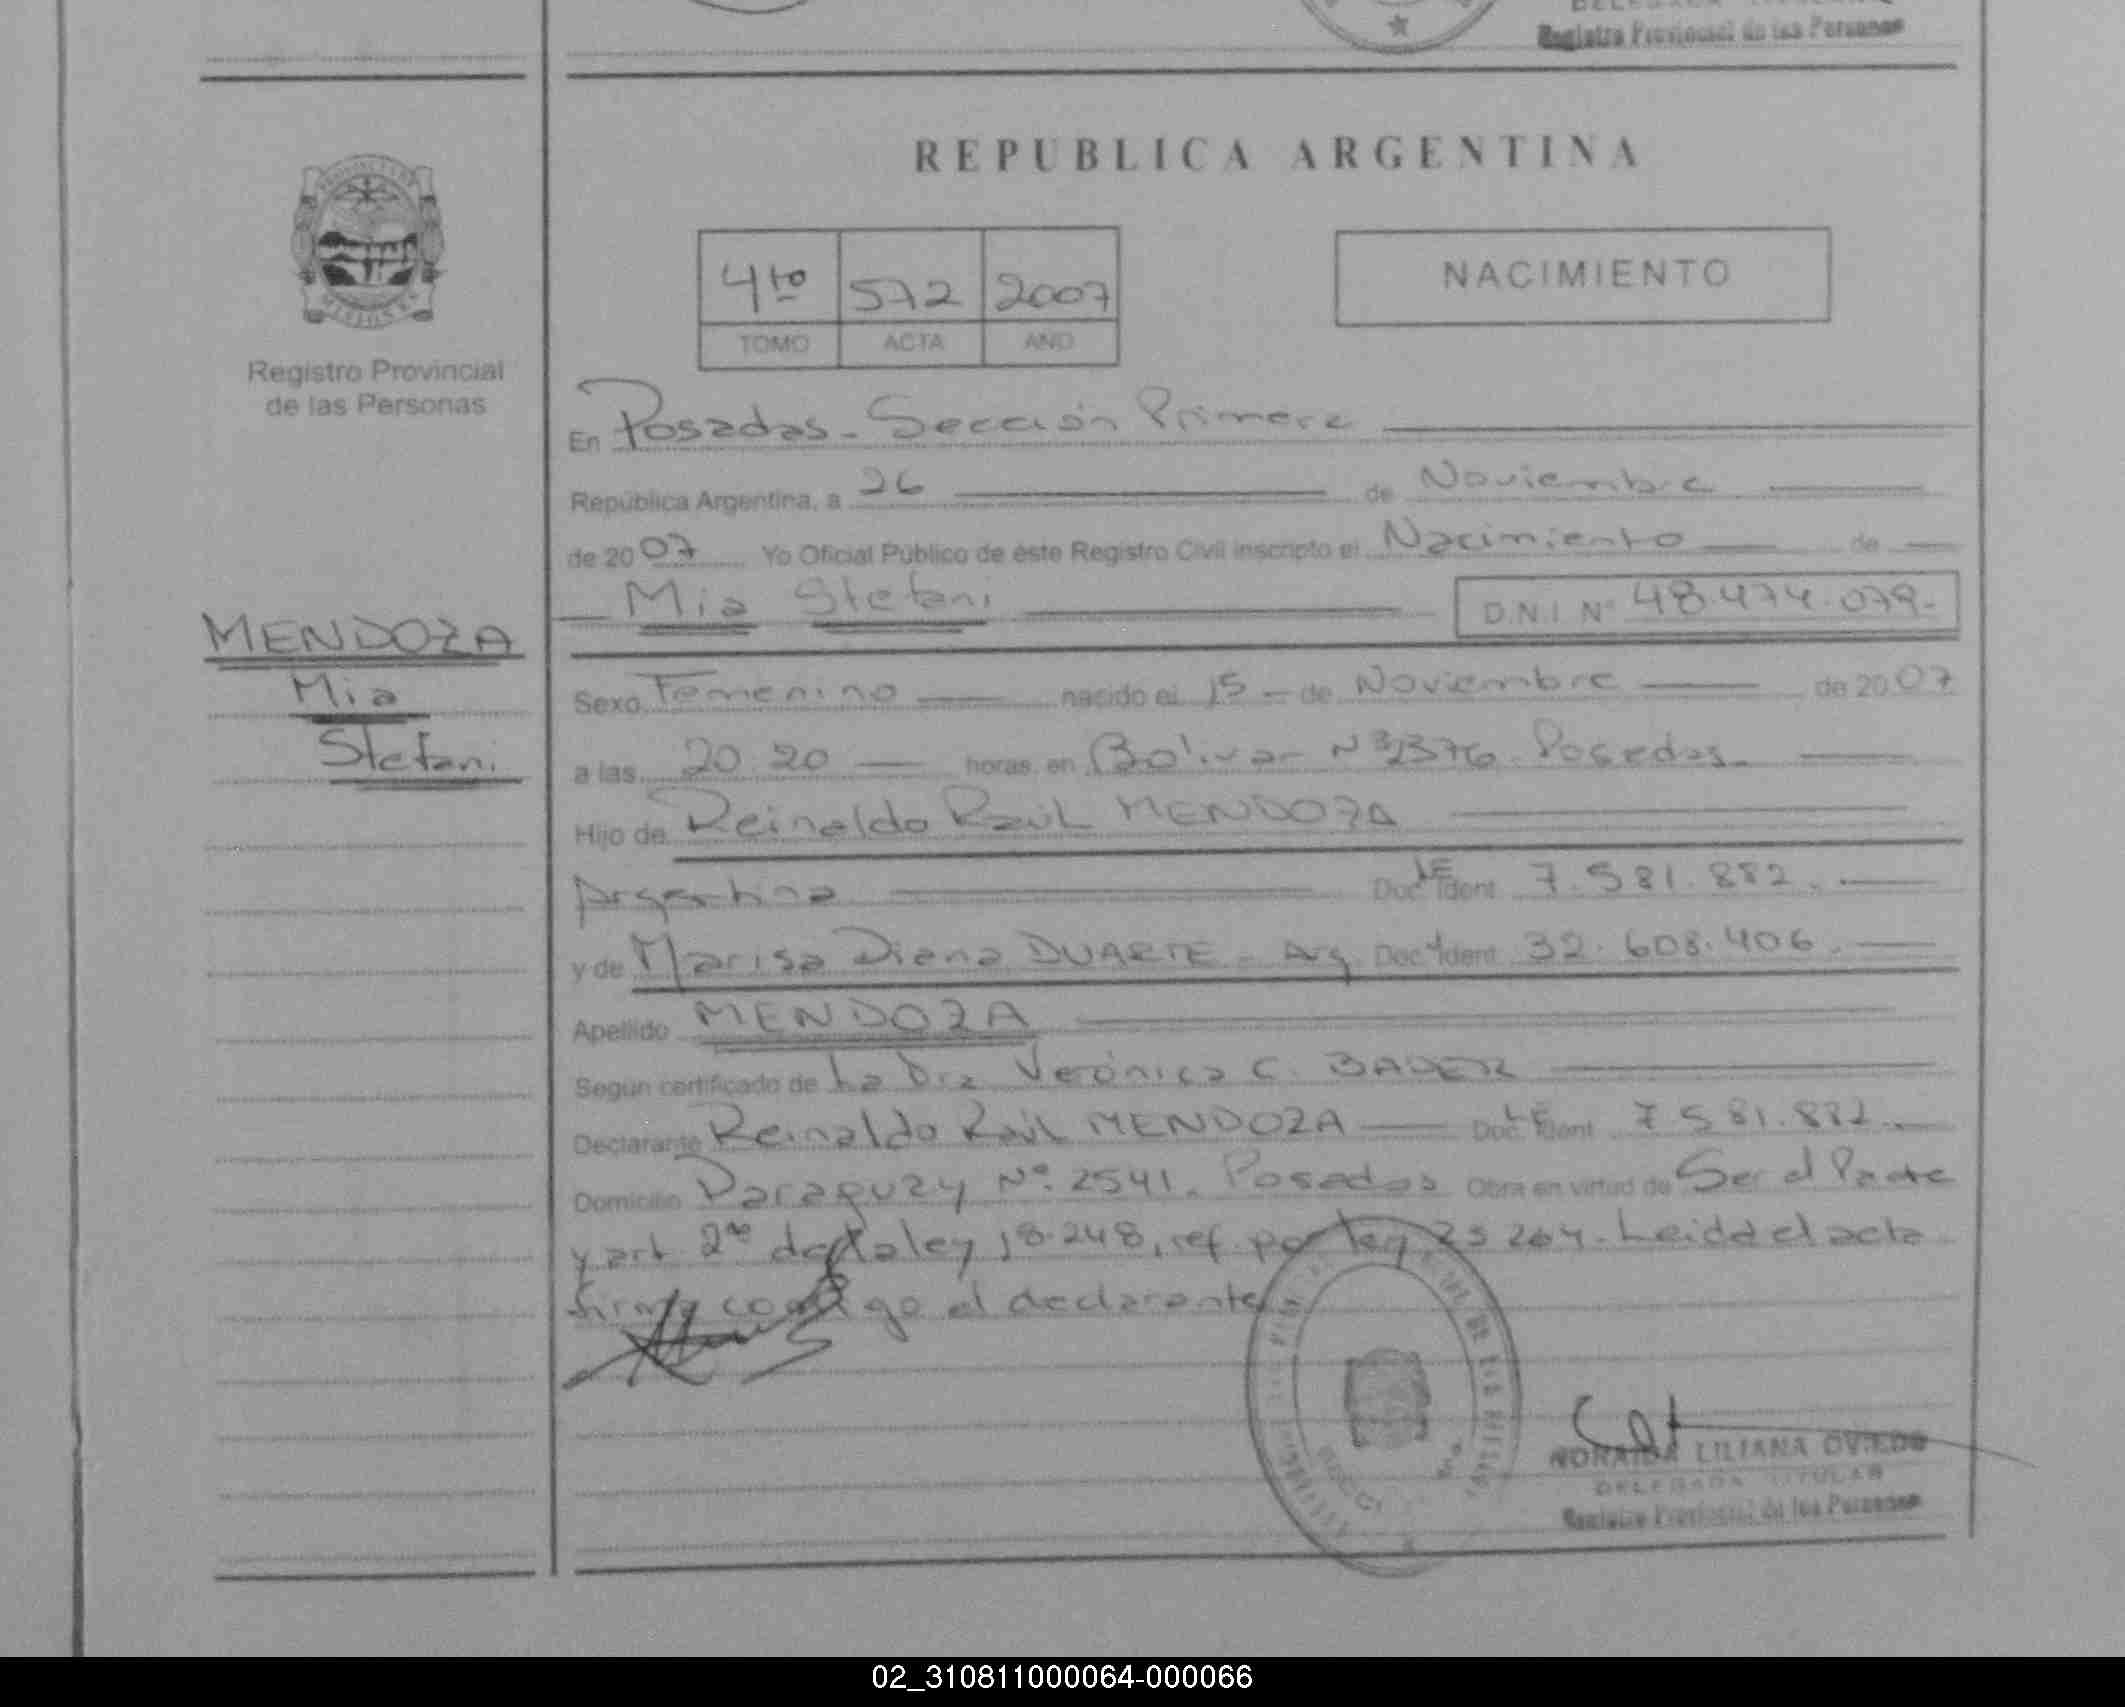 Registro Provincial de las Personas
REPUBLICA ARGENTINA
4to 572 2007
TOMO ACTA AÑO
NACIMIENTO
Registro Provincial
de las Personas
MENDOZA
Mia
Stefani
En Posadas - Sección Primera
República Argentina, a 26 de Noviembre
de 2007 Yo Oficial Público de éste Registro Civil inscripto el Nacimiento de
Mia Stefani D.N.I. Nº 48.474.079.-
Sexo Femenino nacido el 15 - de Noviembre de 2007
a las 20.20 horas, en Bolivar Nº 2376 - Posadas -
Hijo de Reinaldo Raúl MENDOZA
Argentina Doc. Ident LE 7.581.882.
y de Marisa Diana DUARTE - Arg. Doc. Ident 32.608.406.
Apellido MENDOZA
Según certificado de La Dra Verónica C. BADER
Declarante Reinaldo Raúl MENDOZA Doc. Ident LE 7.581.882.
Domicilio Paraguay Nº 2541. Posadas Obra en virtud de Ser el Padre
y art. 2do de la ley 18.248, ref. por ley 23.264. Leida el acta
firma conmigo el declarante.
NORAIDA LILIANA OVIEDO
DELEGADA TITULAR
Registro Provincial de las Personas
02_310811000064-000066